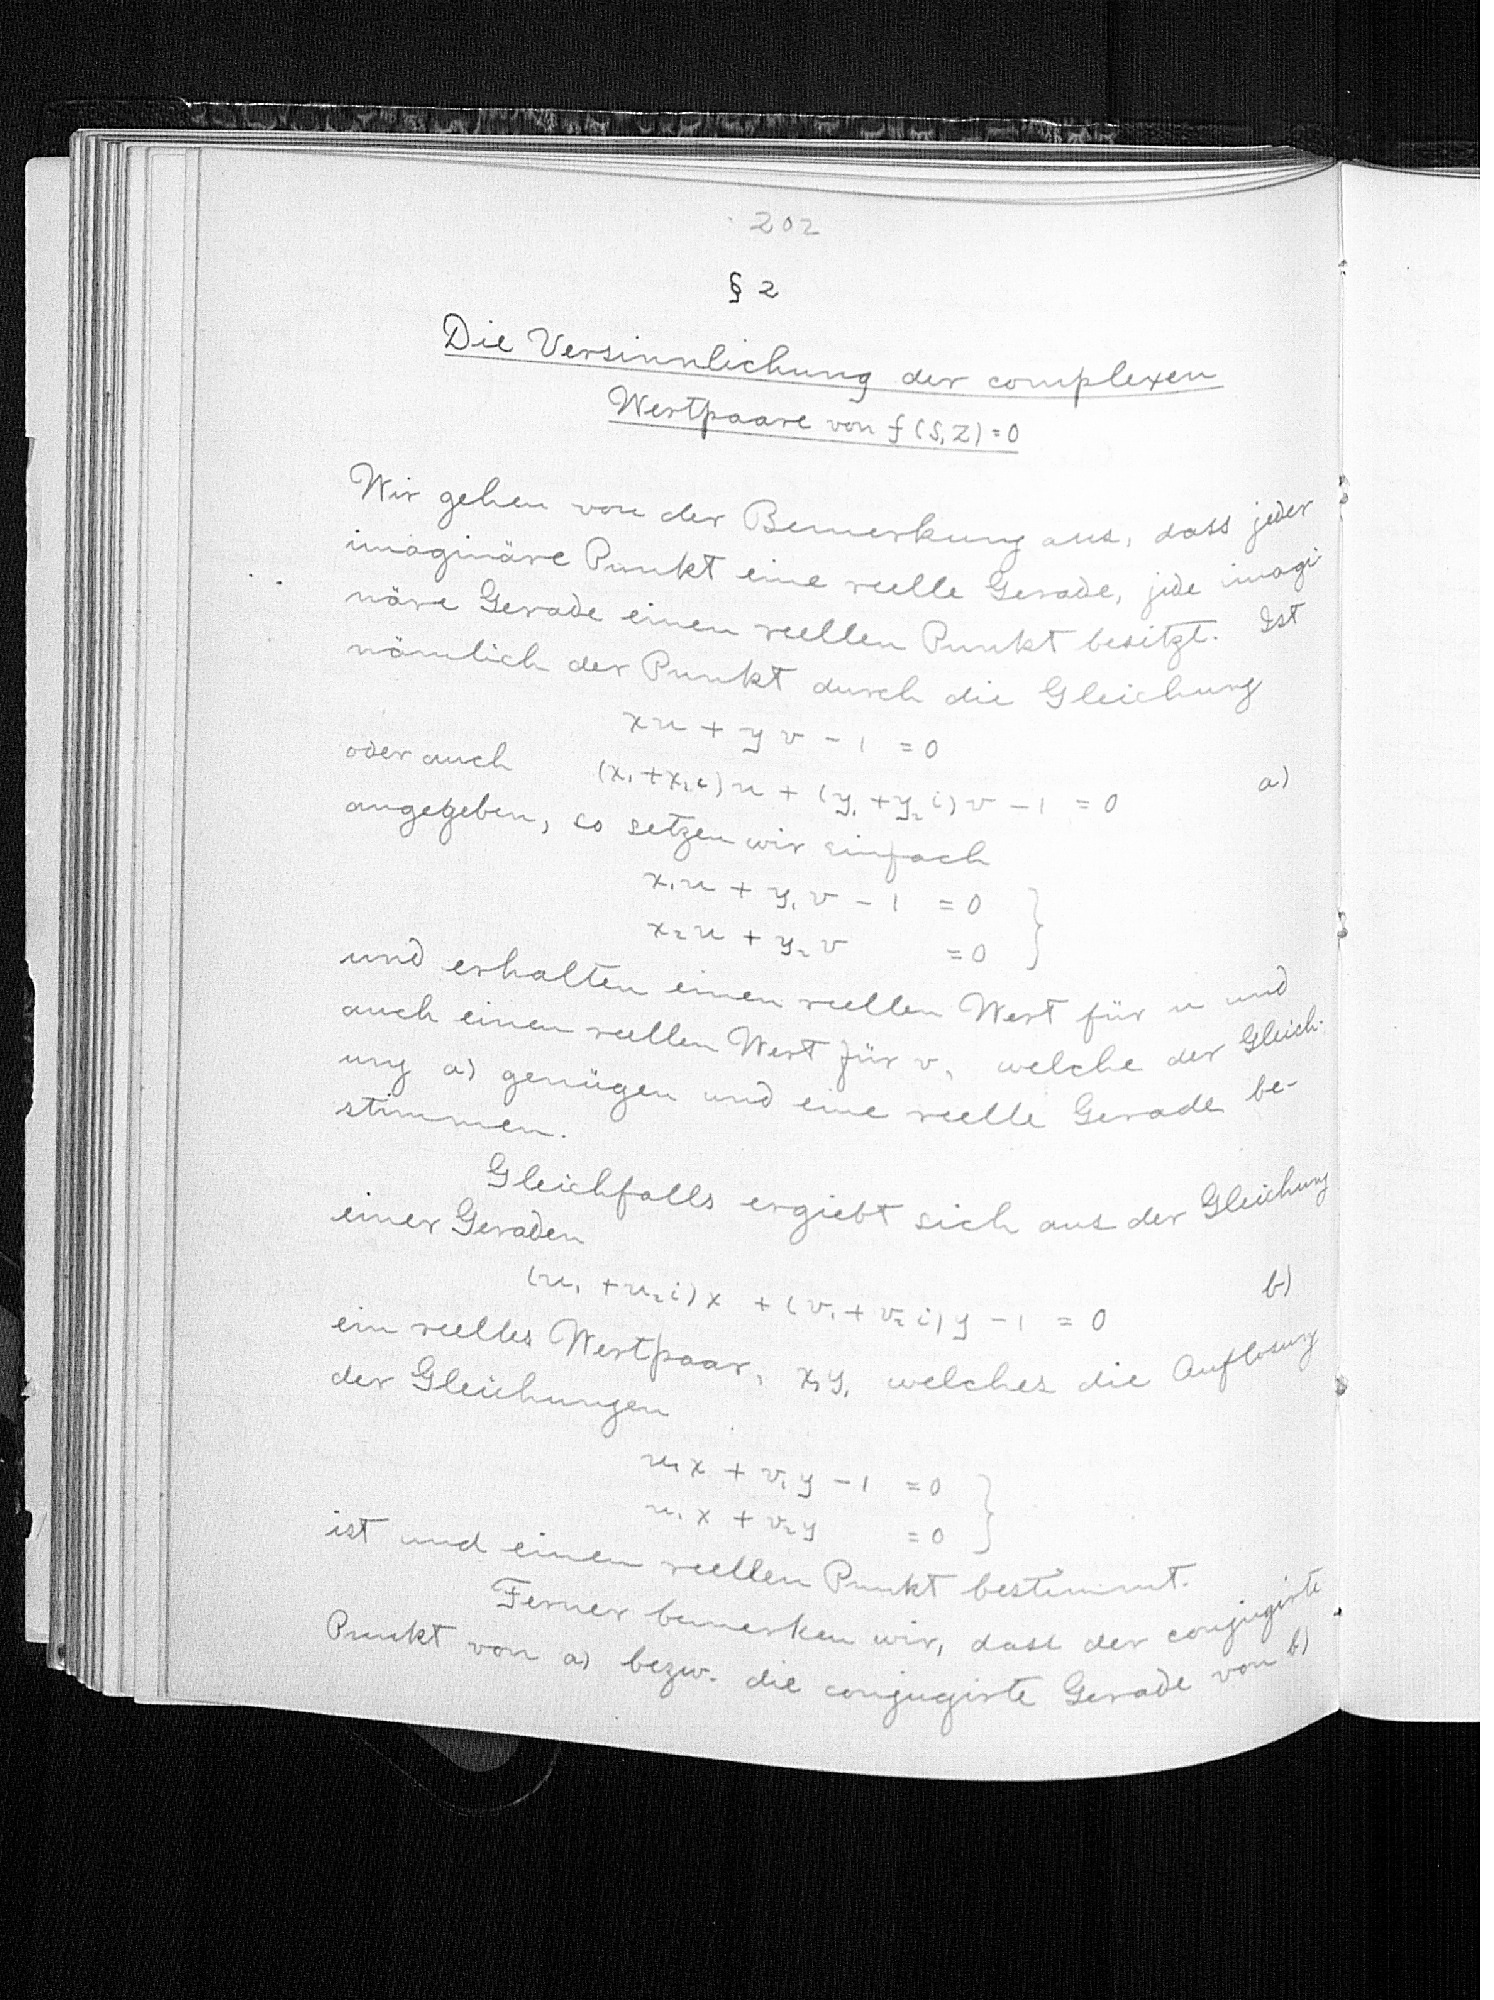 202
§ 2
Die Versinnlichung der complexen
Wertpaare von f(s,z)=0
Wir gehen von der Bemerkung aus, dass jeder
imaginäre Punkt eine reelle Gerade, jede imagi
näre Gerade einen reellen Punkt besitzt. Ist
nämlich der Punkt durch die Gleichung
xu + yv - 1 = 0
oder auch (x₁+x₂i)u + (y₁+y₂i)v - 1 = 0 a)
angegeben, so setzen wir einfach
x₁u + y₁v - 1 = 0 }
x₂u + y₂v = 0
und erhalten einen reellen Wert für u und
auch einen reellen Wert für v, welche der Gleich-
ung a) genügen und eine reelle Gerade be-
stimmen.
Gleichfalls ergiebt sich aus der Gleichung
einer Geraden
(u₁+u₂i)x + (v₁+v₂i)y - 1 = 0 b)
ein reelles Wertpaar, x,y, welches die Auflosung
der Gleichungen
u₁x + v₁y - 1 = 0 }
u₂x + v₂y = 0
ist und einen reellen Punkt bestimmt.
Ferner bemerken wir, dass der conjugirte
Punkt von a) bezw. die conjugirte Gerade von b)